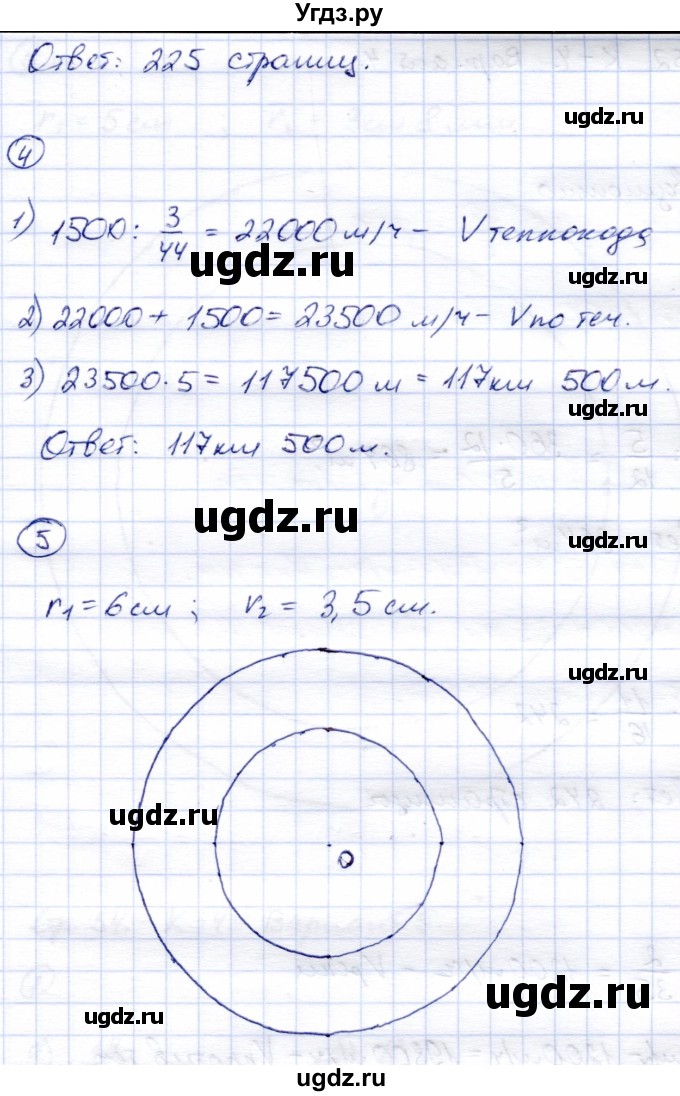 Угдз.ру
Ответ: 225 страниц.
ugdz.ru
4
1) 1500 : 3/44 = 22000 м/ч – V теплохода
ugdz.ru
ugdz.ru
2) 22000 + 1500 = 23500 м/ч – V по теч.
3) 23500 · 5 = 117500 м = 117 км 500 м.
ugdz.ru
Ответ: 117 км 500 м.
ugdz.ru
5
ugdz.ru
r1 = 6 см ; r2 = 3,5 см.
ugdz.ru
ugdz.ru
О
ugdz.ru
ugdz.ru
ugdz.ru